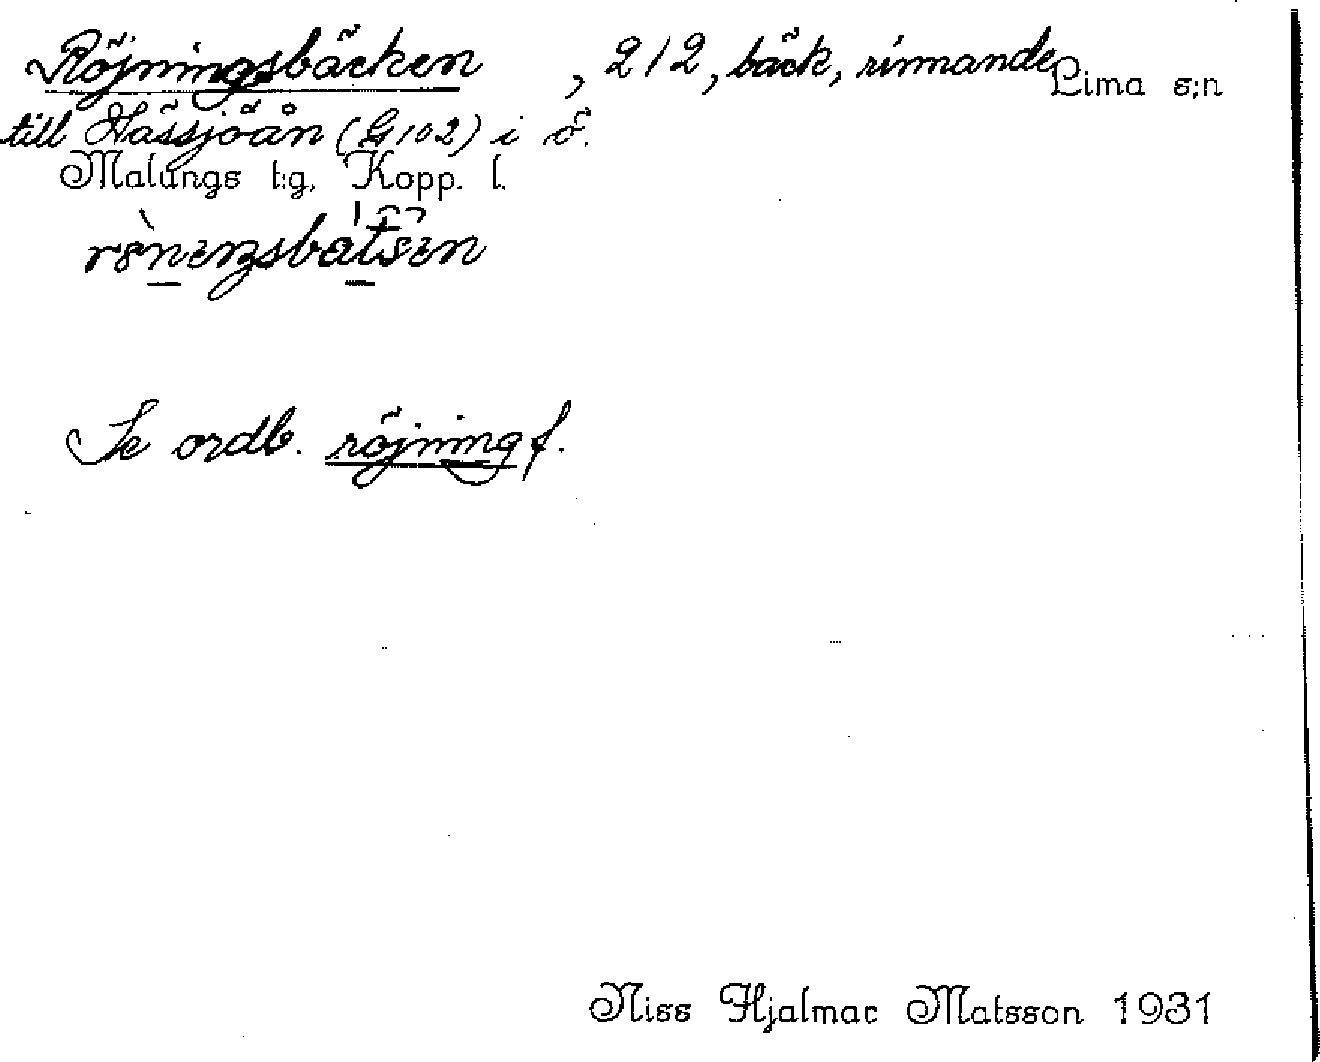 Röjningsbäcken, 212, bäck, rinnande Lima s:n
till Nässjöån (G102) i ö.
Malungs t:g, Kopp. l.
Se ordb. röjning f.
Niss Hjalmar Matsson 1931